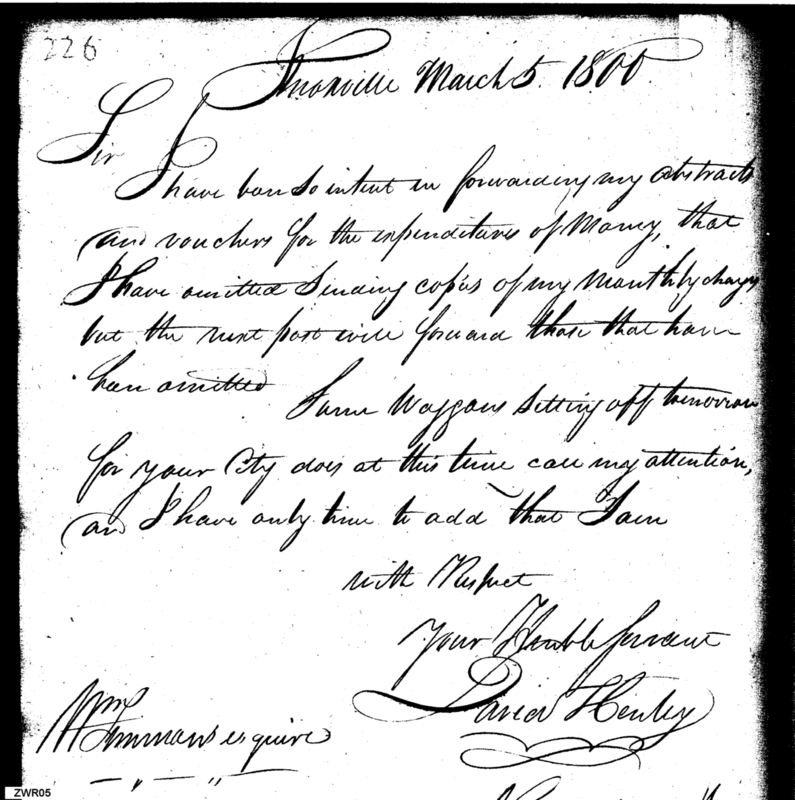 226
Knoxville March 5. 1800
Sir
I have been so intent in forwarding my abstracts
and vouchers for the expenditures of Money, that
I have omitted sending copies of my Monthly charges
but the next post will forward those that have
been omitted
Some Waggons setting off tomorrow
for your City does at this time call my attention,
and I have only time to add that I am
with Respect
Your Hmble Servant
David Henley
Wm
Simmons esquire
ZWR05